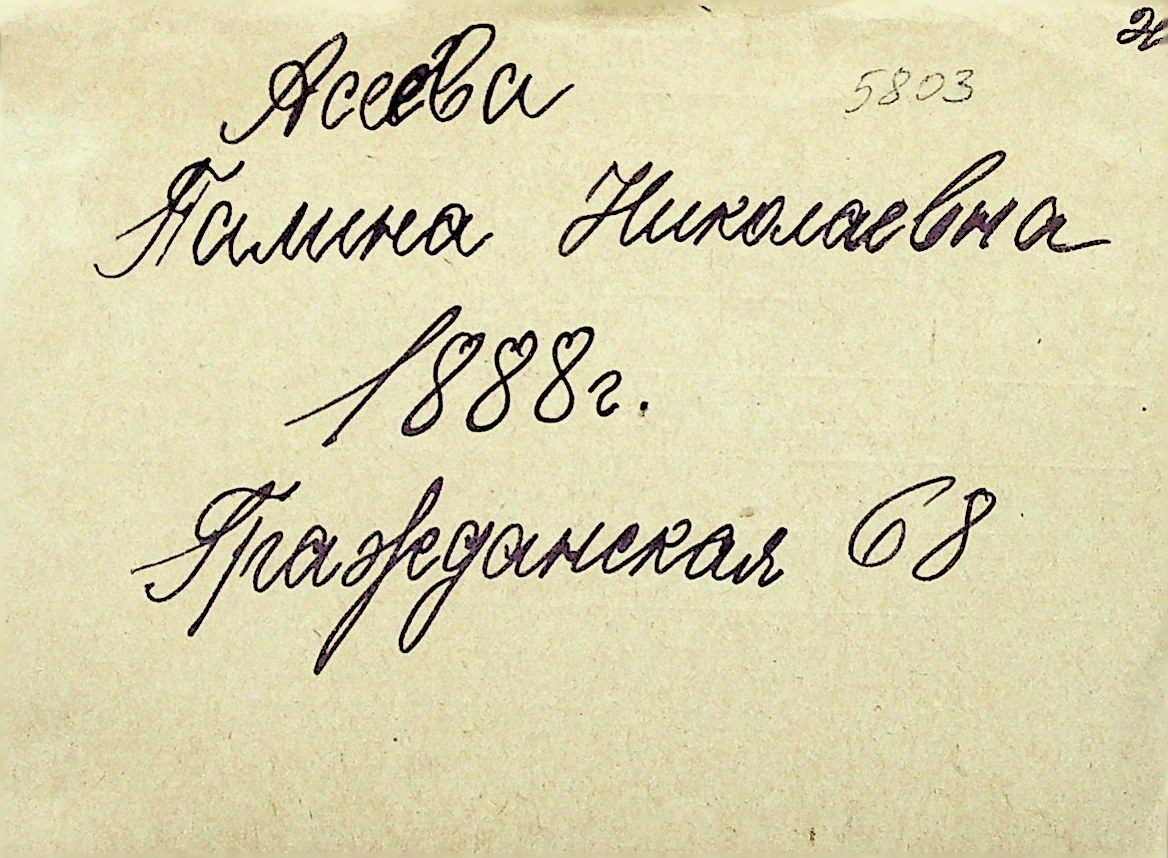 Асеева
5803
Галина Николаевна
1888г.
Гражданская 68